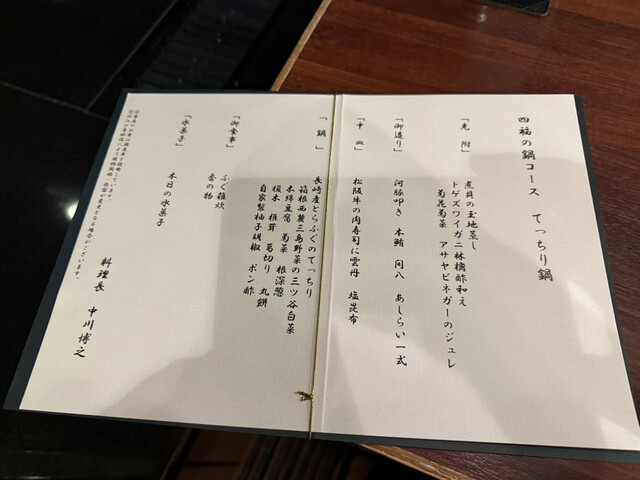 四福の鍋コース　てっちり鍋
「先 附」
煮貝の玉地蒸し
トゲズワイガニ林檎酢和え
菊花菊菜　アサヤビネガーのジュレ
「御造り」
河豚叩き　本鮪　間八　あしらい一式
「中 皿」
松阪牛の肉寿司に雲丹　塩昆布
「 鍋 」
長崎産とらふぐのてっちり
箱根西麓三島野菜の三ツ谷白菜
木綿豆腐　菊菜　根深葱
榎木　椎茸　葛切り　丸餅
自家製柚子胡椒　ポン酢
「御食事」
ふぐ雑炊
香の物
「水菓子」
本日の水菓子
料理長　中川博之